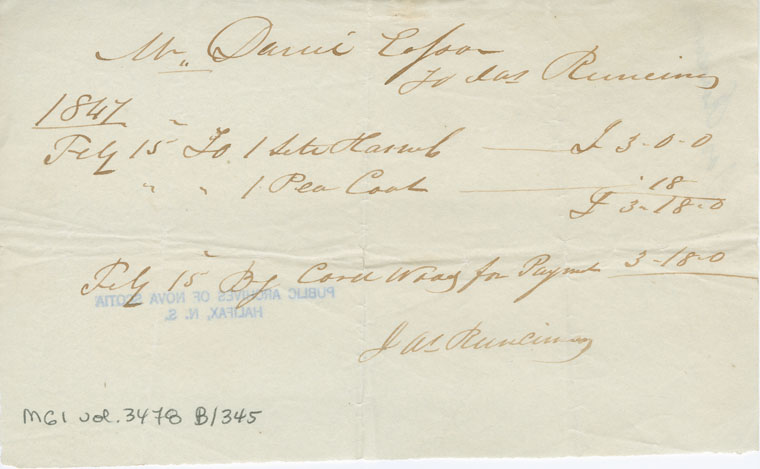 Mr,, Daniel Esson
To Jas Runciman
1847
Feby 15 To 1 Sett Harness £ 3-0-0
" " 1 Pea Coat 18
£ 3-18-0
Feby 15 By Cord Wood for Paymt 3-18-0
Jas Runciman
PUBLIC ARCHIVES OF NOVA SCOTIA
HALIFAX, N. S.
MG1 vol. 3478 B/345